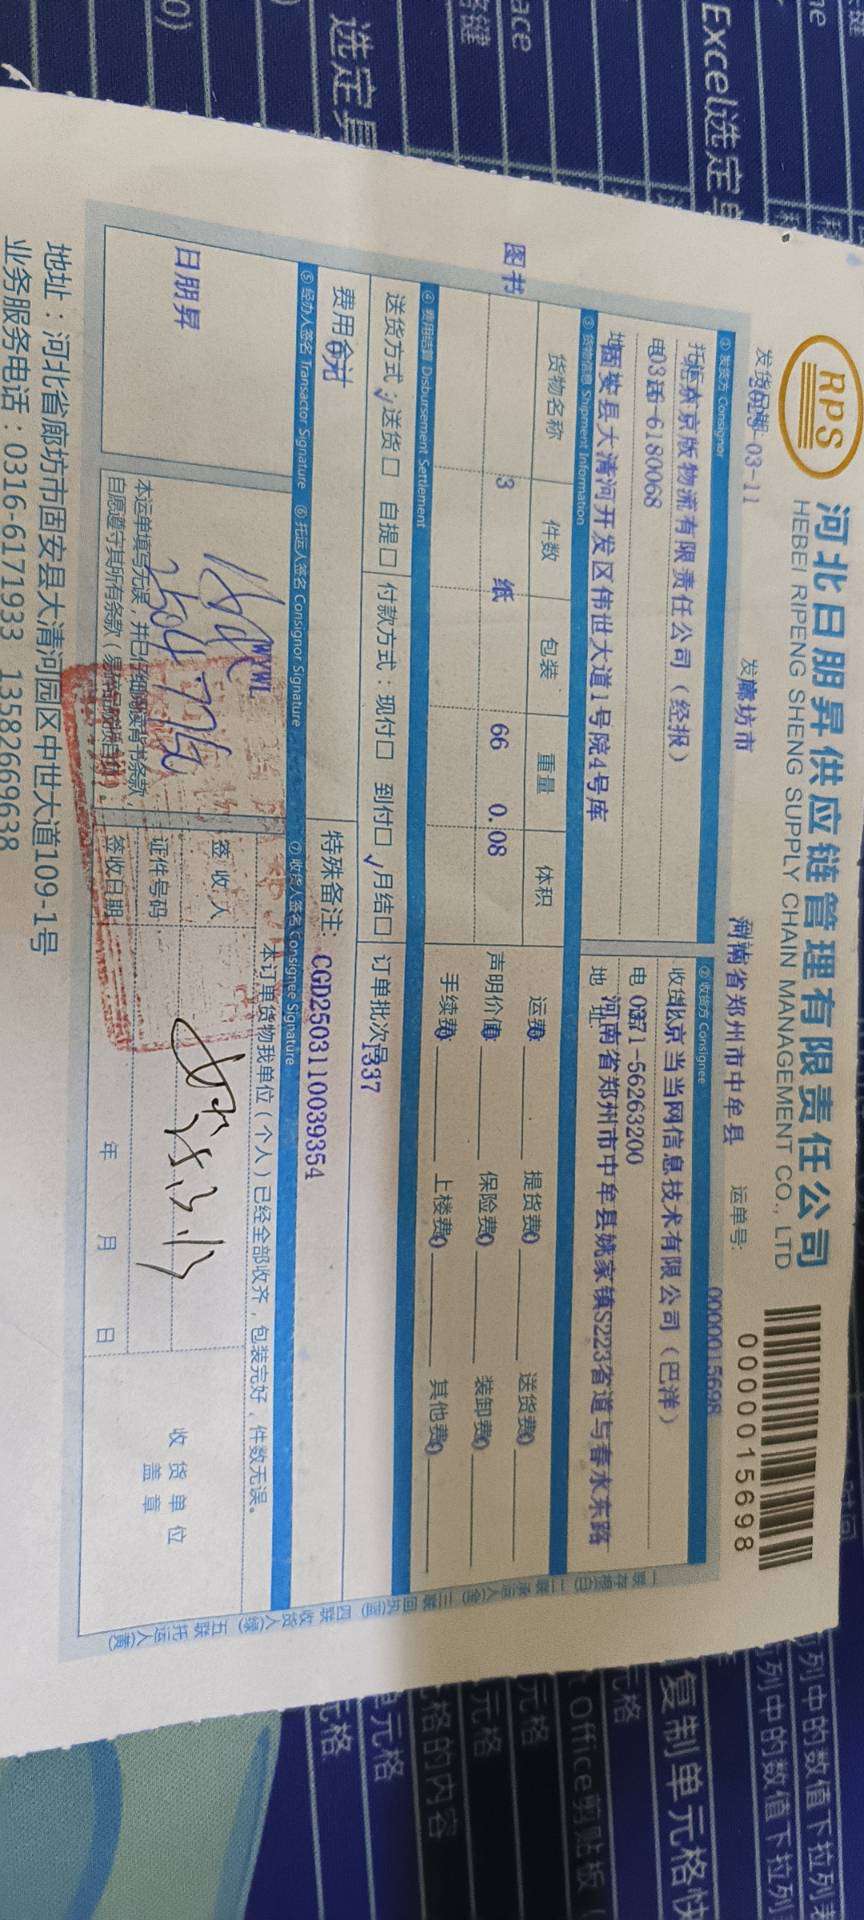 RPS
河北日朋昇供应链管理有限责任公司
HEBEI RIPENG SHENG SUPPLY CHAIN MANAGEMENT CO., LTD
0000015698
发货日期: -03-11
廊坊市
河南省郑州市中牟县
运单号:
0000015698
① 发货方 Consignor
② 收货方 Consignee
京版物流有限责任公司（经报）
收货 北京当当网信息技术有限公司（巴洋）
电 -6180068
电 0371-56263200
固安县大清河开发区伟世大道1号院4号库
地址 河南省郑州市中牟县姚家镇S223省道与春水东路
③ 货物信息 Shipment Information
货物名称 件数 包装 重量 体积
图书 3 纸 66 0.08
运费0 提货费0 送货费0
声明价值0 保险费0 装卸费0
手续费0 上楼费0 其他费0
④ 费用结算 Disbursement Settlement
送货方式：✓送货□ 自提□ 付款方式：现付□ 到付□ ✓月结□ 订单批次号 1337
费用合计
特殊备注: CGD2503110039354
⑤ 经办人签名 Transactor Signature
⑥ 托运人签名 Consignor Signature
⑦ 收货人签名 Consignee Signature
日朋昇
WYWL
本订单货物我单位（个人）已经全部收齐，包装完好，件数无误。
签收人
证件号码
签收日期 年 月 日
收货单位
盖章
本运单填写无误，并已仔细阅读背书条款，
自愿遵守其所有条款
一联存根(白) 二联承运人(金) 三联回执(蓝) 四联收货人(绿) 五联托运人(黄)
地址：河北省廊坊市固安县大清河园区中世大道109-1号
业务服务电话：0316-6171933 13582669638
Excel选定单
选定
复制单元格
Office剪贴板
格的内容
元格
元格
元格
列中的数值下拉列表
列中的数值下拉列